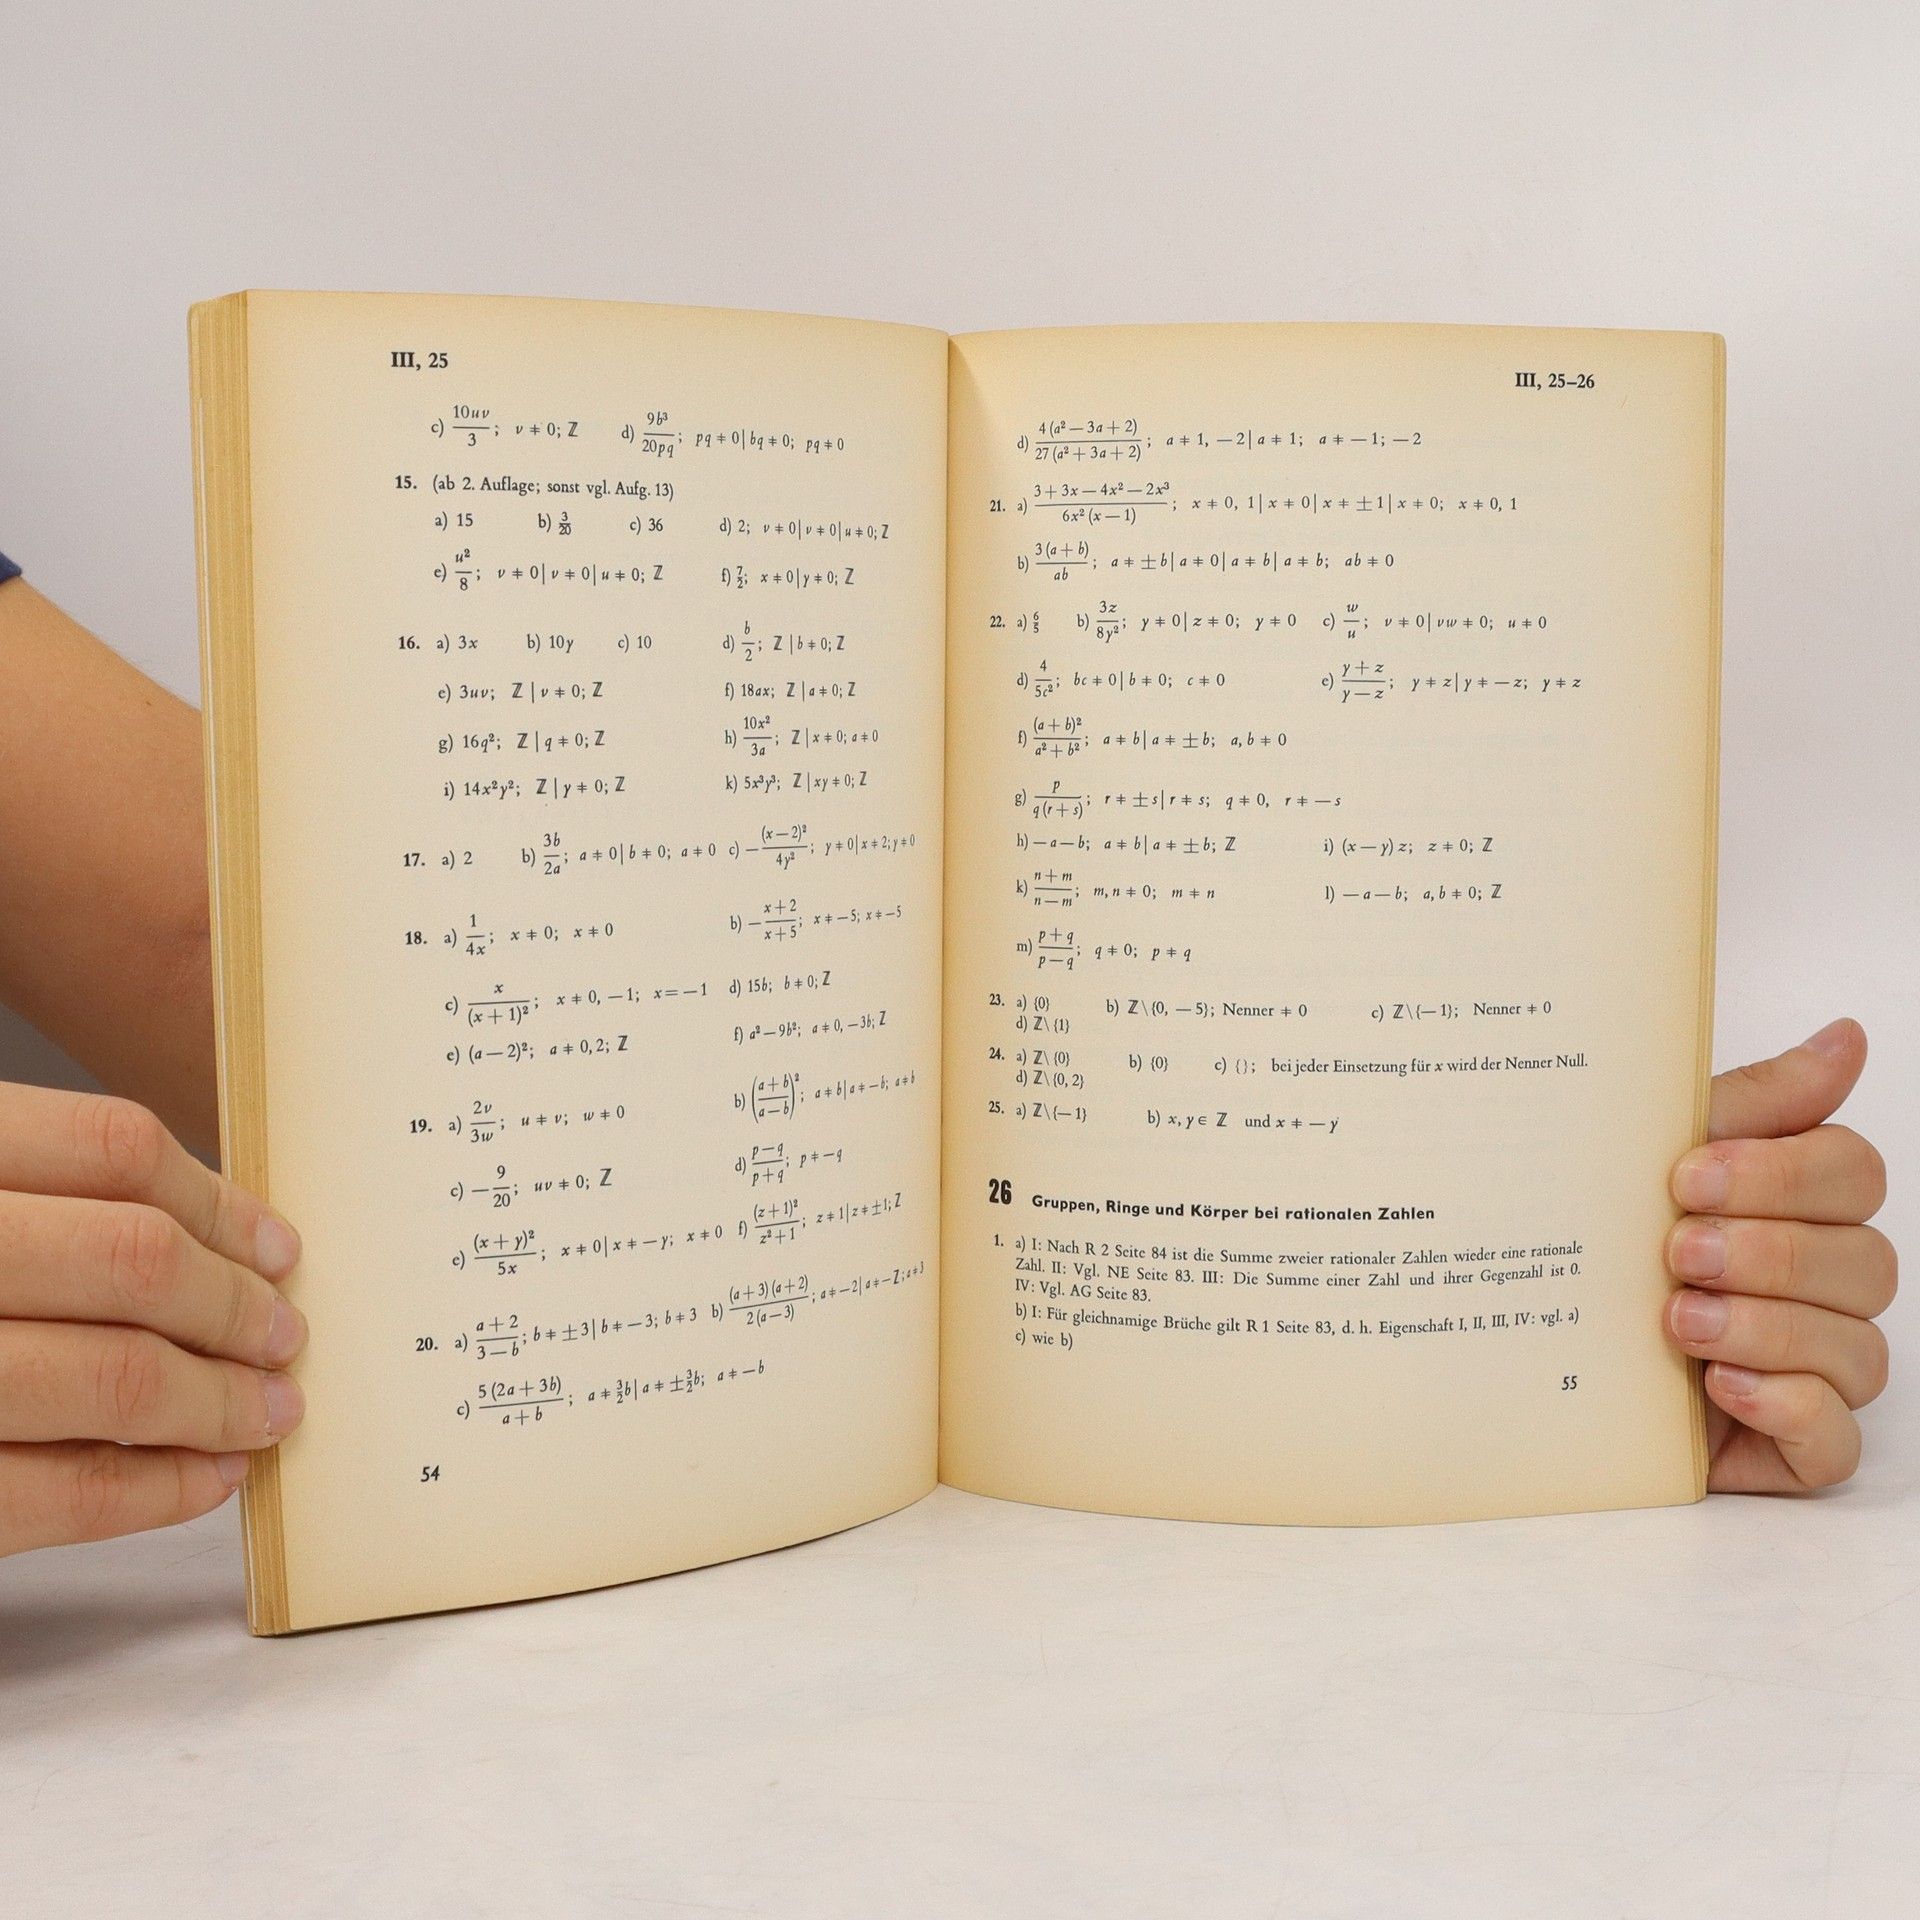 III, 25
c) 10uv/3; v ≠ 0; ℤ d) 9b³/20pq; pq ≠ 0 | bq ≠ 0; pq ≠ 0
15. (ab 2. Auflage; sonst vgl. Aufg. 13)
a) 15 b) 3/20 c) 36 d) 2; v ≠ 0 | v ≠ 0 | u ≠ 0; ℤ
e) u²/8; v ≠ 0 | v ≠ 0 | u ≠ 0; ℤ f) 7/2; x ≠ 0 | y ≠ 0; ℤ
16. a) 3x b) 10y c) 10 d) b/2; ℤ | b ≠ 0; ℤ
e) 3uv; ℤ | v ≠ 0; ℤ f) 18ax; ℤ | a ≠ 0; ℤ
g) 16q²; ℤ | q ≠ 0; ℤ h) 10x²/3a; ℤ | x ≠ 0; a ≠ 0
i) 14x²y²; ℤ | y ≠ 0; ℤ k) 5x³y³; ℤ | xy ≠ 0; ℤ
17. a) 2 b) 3b/2a; a ≠ 0 | b ≠ 0; a ≠ 0 c) −(x − 2)²/4y²; y ≠ 0 | x ≠ 2; y ≠ 0
18. a) 1/4x; x ≠ 0; x ≠ 0 b) −(x + 2)/(x + 5); x ≠ −5; x ≠ −5
c) x/(x + 1)²; x ≠ 0, −1; x = −1 d) 15b; b ≠ 0; ℤ
e) (a − 2)²; a ≠ 0, 2; ℤ f) a² − 9b²; a ≠ 0, −3b; ℤ
19. a) 2v/3w; u ≠ v; w ≠ 0 b) ((a + b)/(a − b))²; a ≠ b | a ≠ −b; a ≠ b
c) −9/20; uv ≠ 0; ℤ d) (p − q)/(p + q); p ≠ −q
e) (x + y)²/5x; x ≠ 0 | x ≠ −y; x ≠ 0 f) (z + 1)²/(z² + 1); z ≠ 1 | z ≠ ±1; ℤ
20. a) (a + 2)/(3 − b); b ≠ ±3 | b ≠ −3; b ≠ 3 b) (a + 3)(a + 2)/2(a − 3); a ≠ −2 | a ≠ −2; a ≠ 3
c) 5(2a + 3b)/(a + b); a ≠ 3/2b | a ≠ ±3/2b; a ≠ −b
54
III, 25–26
d) 4(a² − 3a + 2)/27(a² + 3a + 2); a ≠ 1, −2 | a ≠ 1; a ≠ −1; −2
21. a) (3 + 3x − 4x² − 2x³)/6x²(x − 1); x ≠ 0, 1 | x ≠ 0 | x ≠ ±1 | x ≠ 0; x ≠ 0, 1
b) 3(a + b)/ab; a ≠ ±b | a ≠ 0 | a ≠ b | a ≠ b; ab ≠ 0
22. a) 6/5 b) 3z/8y²; y ≠ 0 | z ≠ 0; y ≠ 0 c) w/u; v ≠ 0 | vw ≠ 0; u ≠ 0
d) 4/5c²; bc ≠ 0 | b ≠ 0; c ≠ 0 e) (y + z)/(y − z); y ≠ z | y ≠ −z; y ≠ z
f) (a + b)²/(a² + b²); a ≠ b | a ≠ ±b; a, b ≠ 0
g) p/q(r + s); r ≠ ±s | r ≠ s; q ≠ 0, r ≠ −s
h) −a − b; a ≠ b | a ≠ ±b; ℤ i) (x − y) z; z ≠ 0; ℤ
k) (n + m)/(n − m); m, n ≠ 0; m ≠ n l) −a − b; a, b ≠ 0; ℤ
m) (p + q)/(p − q); q ≠ 0; p ≠ q
23. a) {0} b) ℤ\{0, −5}; Nenner ≠ 0 c) ℤ\{−1}; Nenner ≠ 0
d) ℤ\{1}
24. a) ℤ\{0} b) {0} c) { }; bei jeder Einsetzung für x wird der Nenner Null.
d) ℤ\{0, 2}
25. a) ℤ\{−1} b) x, y ∈ ℤ und x ≠ −y
26 Gruppen, Ringe und Körper bei rationalen Zahlen
1. a) I: Nach R 2 Seite 84 ist die Summe zweier rationaler Zahlen wieder eine rationale
Zahl. II: Vgl. NE Seite 83. III: Die Summe einer Zahl und ihrer Gegenzahl ist 0.
IV: Vgl. AG Seite 83.
b) I: Für gleichnamige Brüche gilt R 1 Seite 83, d. h. Eigenschaft I, II, III, IV: vgl. a)
c) wie b)
55